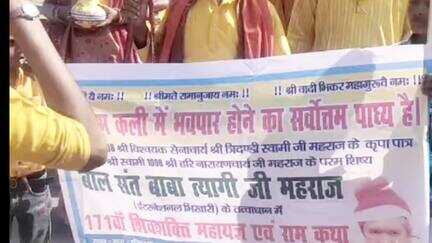 यै नमः !! !! श्रीमते रामानुजाय नमः !! !! श्री वादी भिकर महागुरूवै नमः !!
कली में भवपार होने का सर्वोत्तम पाध्य है।
श्री विश्वयक सेनाचार्य श्री त्रिदण्डी स्वामी जी महराज के कृपा पात्र
श्री स्वामी 1008 श्री हरि नारायणचार्य जी महराज के परम शिष्य
बाल संत बाबा त्यागी जी महराज
(इंटरनेशनल भिखारी) के तत्वाधान में
171वाँ महायज्ञ एवं राम कथा